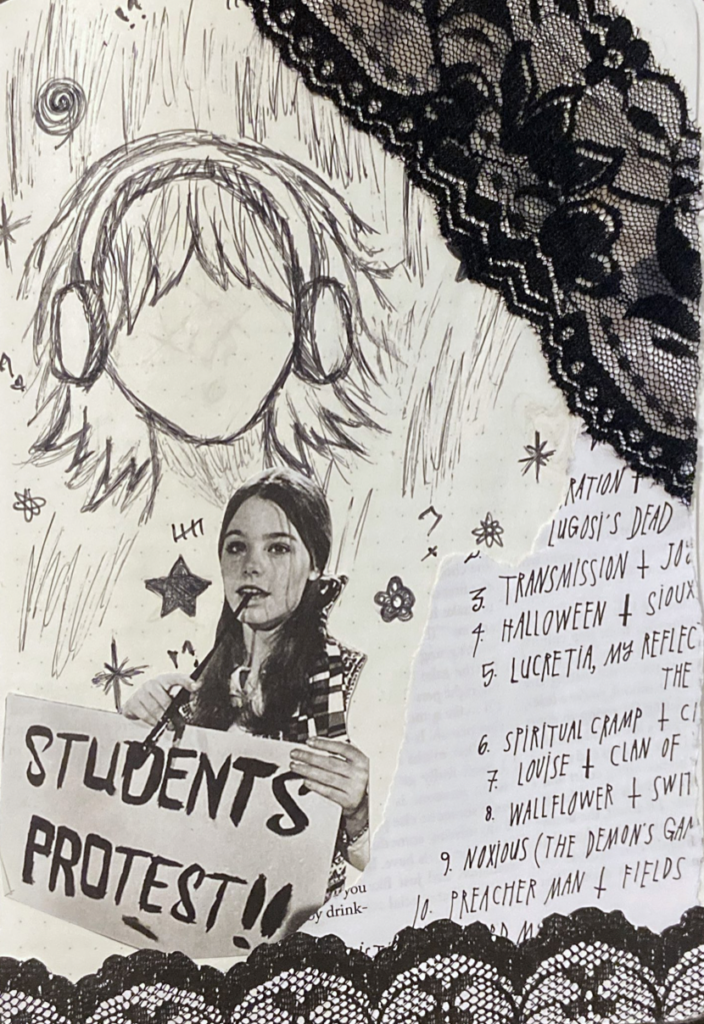 STUDENTS
PROTEST!!
RATION †
LUGOSI'S DEAD
3. TRANSMISSION † JO
4. HALLOWEEN † SIOUX
5. LUCRETIA, MY REFLEC
THE
6. SPIRITUAL CRAMP † C
7. LOUISE † CLAN OF
8. WALLFLOWER † SWI
9. NOXIOUS (THE DEMON'S GA
10. PREACHER MAN † FIELDS
you
y drink-